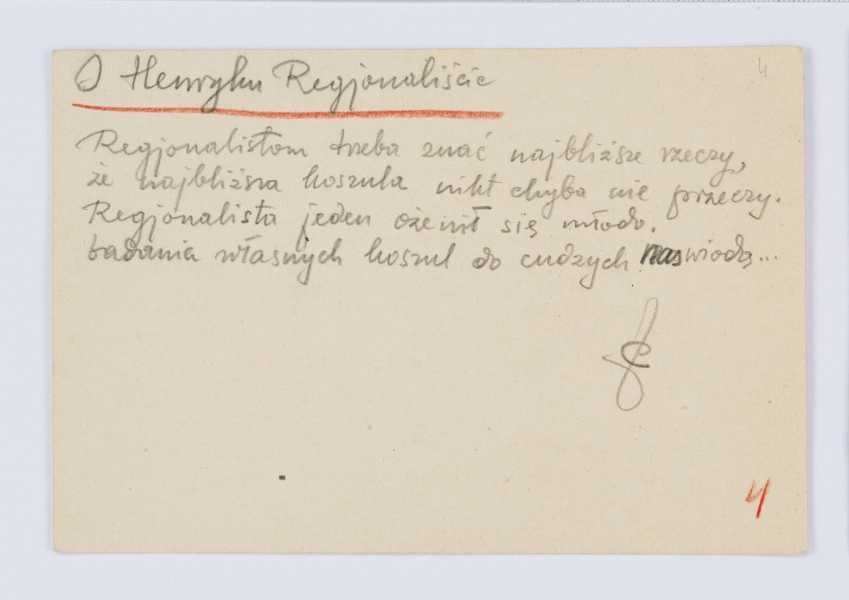 4
O Henryku Regjonaliście
Regjonalistom trzeba znać najbliższe rzeczy,
że najbliższa koszula nikt chyba nie przeczy.
Regjonalista jeden ożenił się młodo.
badania własnych koszul do cudzych nas wiodą...
4